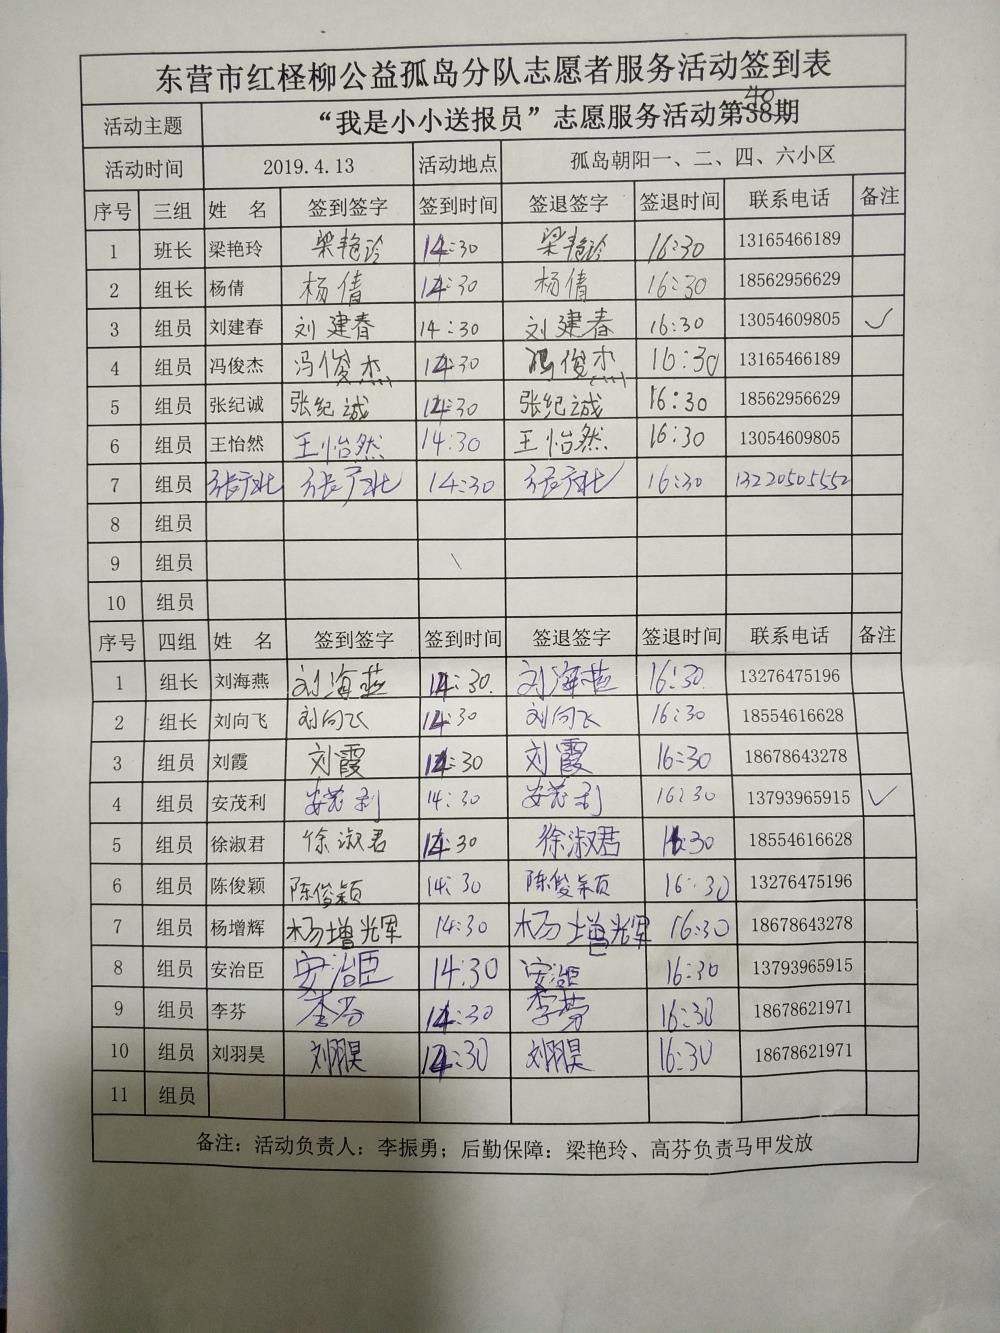 东营市红柽柳公益孤岛分队志愿者服务活动签到表
活动主题 “我是小小送报员”志愿服务活动第38期 40
活动时间 2019.4.13 活动地点 孤岛朝阳一、二、四、六小区
序号 三组 姓 名 签到签字 签到时间 签退签字 签退时间 联系电话 备注
1 班长 梁艳玲 梁艳玲 14:30 梁艳玲 16:30 13165466189
2 组长 杨倩 杨倩 14:30 杨倩 16:30 18562956629
3 组员 刘建春 刘建春 14:30 刘建春 16:30 13054609805 ✓
4 组员 冯俊杰 冯俊杰 14:30 冯俊杰 16:30 13165466189
5 组员 张纪诚 张纪诚 14:30 张纪诚 16:30 18562956629
6 组员 王怡然 王怡然 14:30 王怡然 16:30 13054609805
7 组员 14:30 16:30 13220505552
8 组员
9 组员
10 组员
序号 四组 姓 名 签到签字 签到时间 签退签字 签退时间 联系电话 备注
1 组长 刘海燕 刘海燕 14:30 刘海燕 16:30 13276475196
2 组长 刘向飞 刘向飞 14:30 刘向飞 16:30 18554616628
3 组员 刘霞 刘霞 14:30 刘霞 16:30 18678643278
4 组员 安茂利 安茂利 14:30 安茂利 16:30 13793965915 ✓
5 组员 徐淑君 徐淑君 14:30 徐淑君 16:30 18554616628
6 组员 陈俊颖 陈俊颖 14:30 陈俊颖 16:30 13276475196
7 组员 杨增辉 杨增辉 14:30 杨增辉 16:30 18678643278
8 组员 安治臣 安治臣 14:30 安治臣 16:30 13793965915
9 组员 李芬 李芬 14:30 李芬 16:30 18678621971
10 组员 刘羽昊 刘羽昊 14:30 刘羽昊 16:30 18678621971
11 组员
备注：活动负责人：李振勇；后勤保障：梁艳玲、高芬负责马甲发放